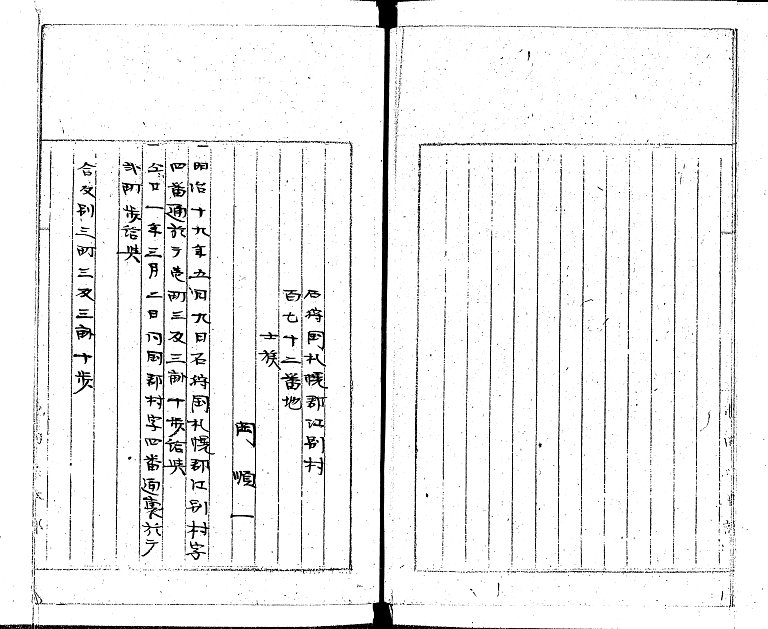 石狩国札幌郡江別村
百七十二番地
士族
岡順一
一明治十九年五月九日石狩国札幌郡江別村字
四番通於テ壱町三反三畝十歩給与
一仝廿一年三月二日同国郡村字四番通裏於テ
弐町歩給与
合反別三町三反三畝十歩